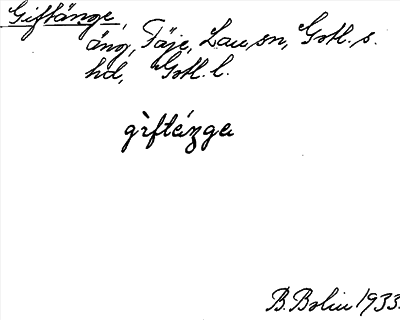 Giftänge,
äng, Fäje, Lau sn, Gotl. s.
hd, Gotl. l.
gìftáŋga
B. Bolin 1933.